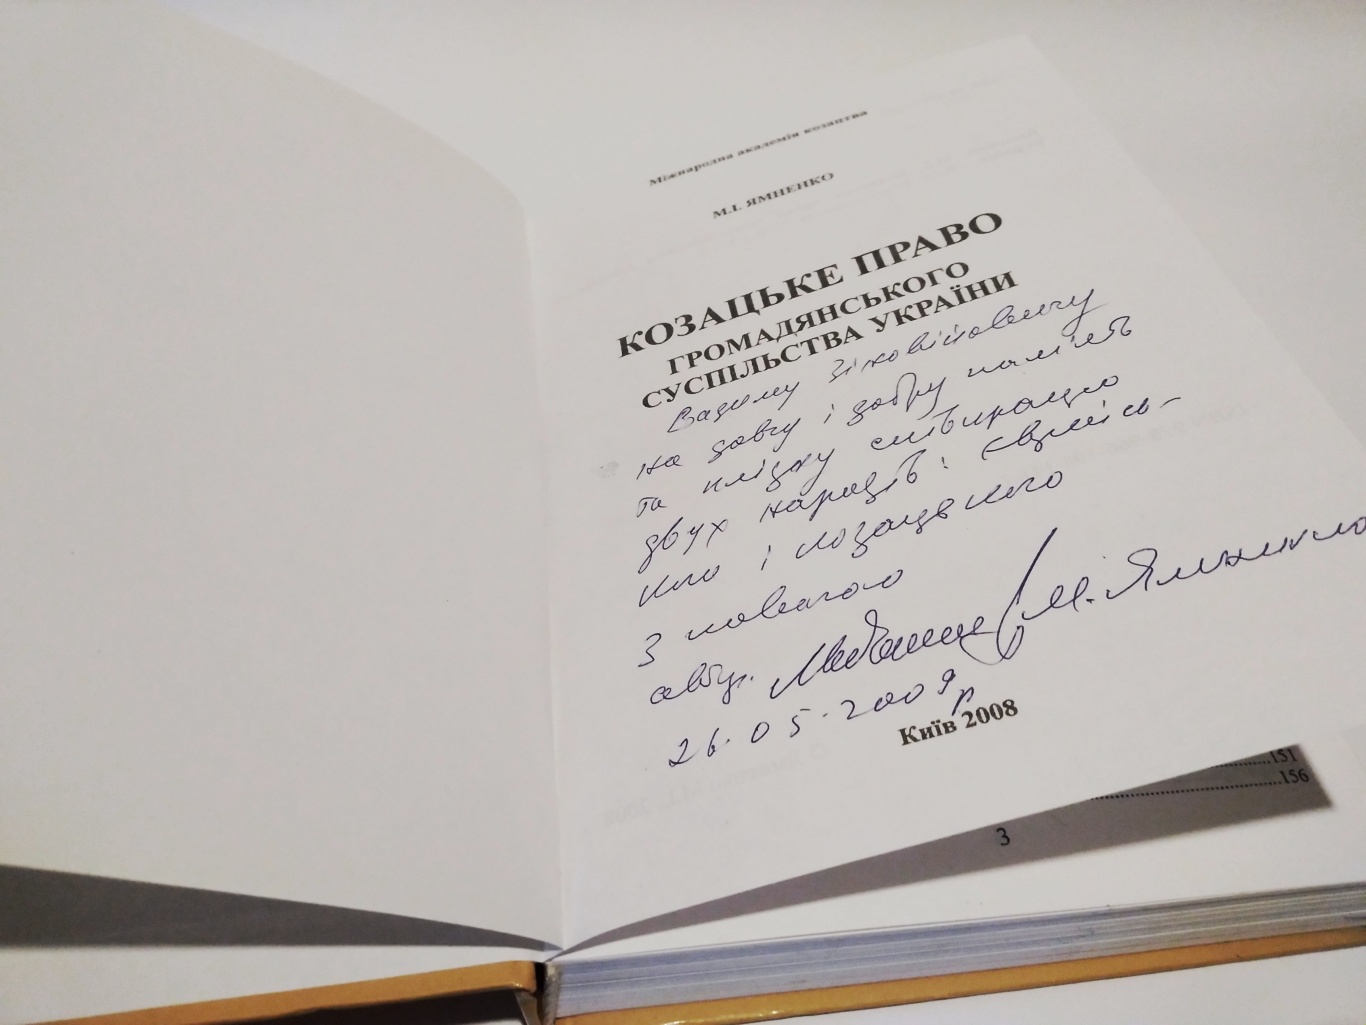 Міжнародна академія козацтва
М.І. ЯМНЕНКО
КОЗАЦЬКЕ ПРАВО
ГРОМАДЯНСЬКОГО
СУСПІЛЬСТВА УКРАЇНИ
Вадиму Зіновійовичу
на довгу і добру пам'ять
та плідну співпрацю
двух народів: Єврейсь-
кого і козацького
З повагою
автор. М. Ямненко
26.05.2009р
Київ 2008
151
156
3